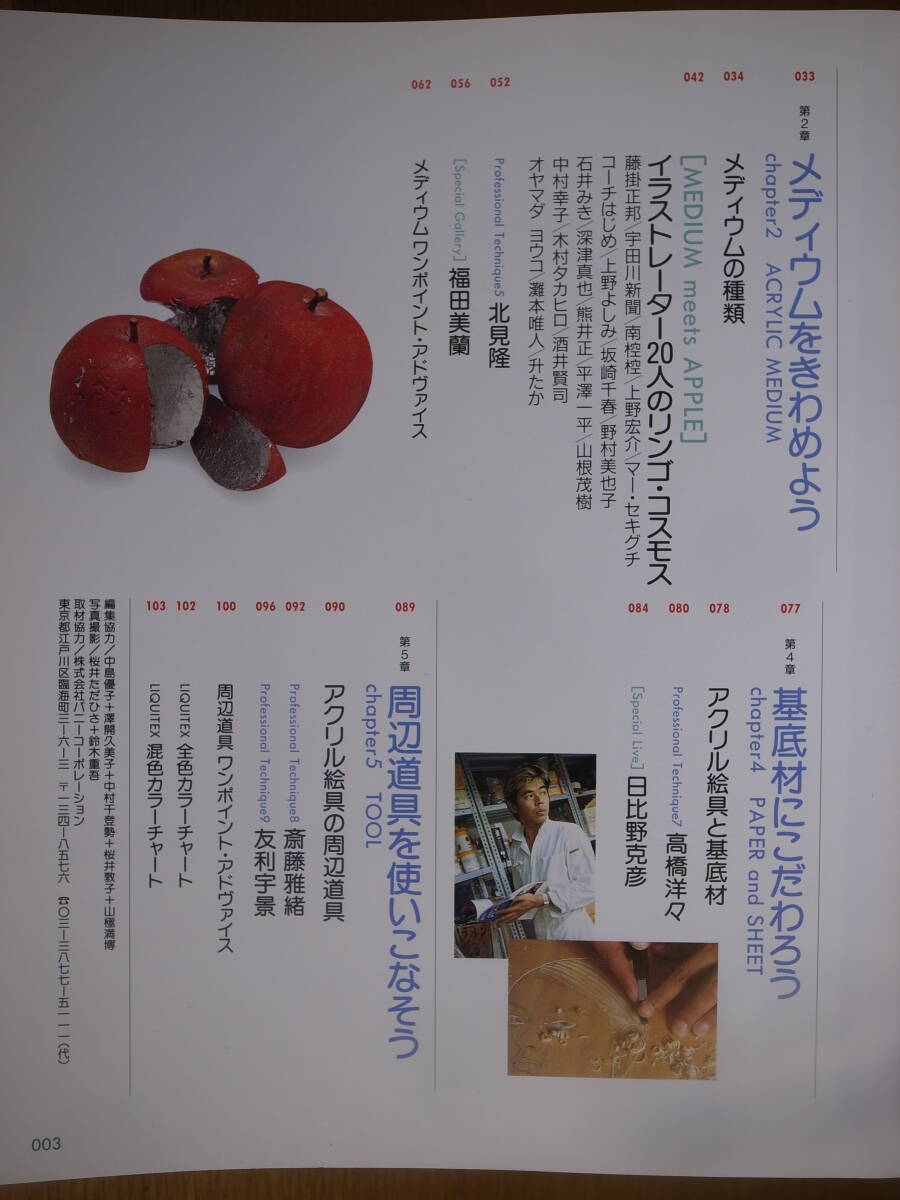 033
第2章
メディウムをきわめよう
chapter2 ACRYLIC MEDIUM
034
メディウムの種類
042
[MEDIUM meets APPLE]
イラストレーター20人のリンゴ・コスモス
藤掛正邦/宇田川新聞/南椌椌/上野宏介/マー・セキグチ
コーチはじめ/上野よしみ/坂崎千春/野村美也子
石井みき/深津真也/熊井正/平澤一平/山根茂樹
中村幸子/木村タカヒロ/酒井賢司
オヤマダ ヨウコ/灘本唯人/升たか
052
Professional Technique5 北見隆
056
[Special Gallery] 福田美蘭
062
メディウムワンポイント・アドヴァイス
077
第4章
基底材にこだわろう
chapter4 PAPER and SHEET
078
アクリル絵具と基底材
080
Professional Technique7 高橋洋々
084
[Special Live] 日比野克彦
089
第5章
周辺道具を使いこなそう
chapter5 TOOL
090
アクリル絵具の周辺道具
092
Professional Technique8 斎藤雅緒
096
Professional Technique9 友利宇景
100
周辺道具 ワンポイント・アドヴァイス
102
LIQUITEX 全色カラーチャート
103
LIQUITEX 混色カラーチャート
編集協力/中島優子+澤開久美子+中村千登勢+桜井敦子+山極満博
写真撮影/桜井ただひさ+鈴木重吾
取材協力/株式会社バニーコーポレーション
東京都江戸川区臨海町三-六-三 〒一三四-八五七六 ☎〇三-三八七七-五一一一(代)
003